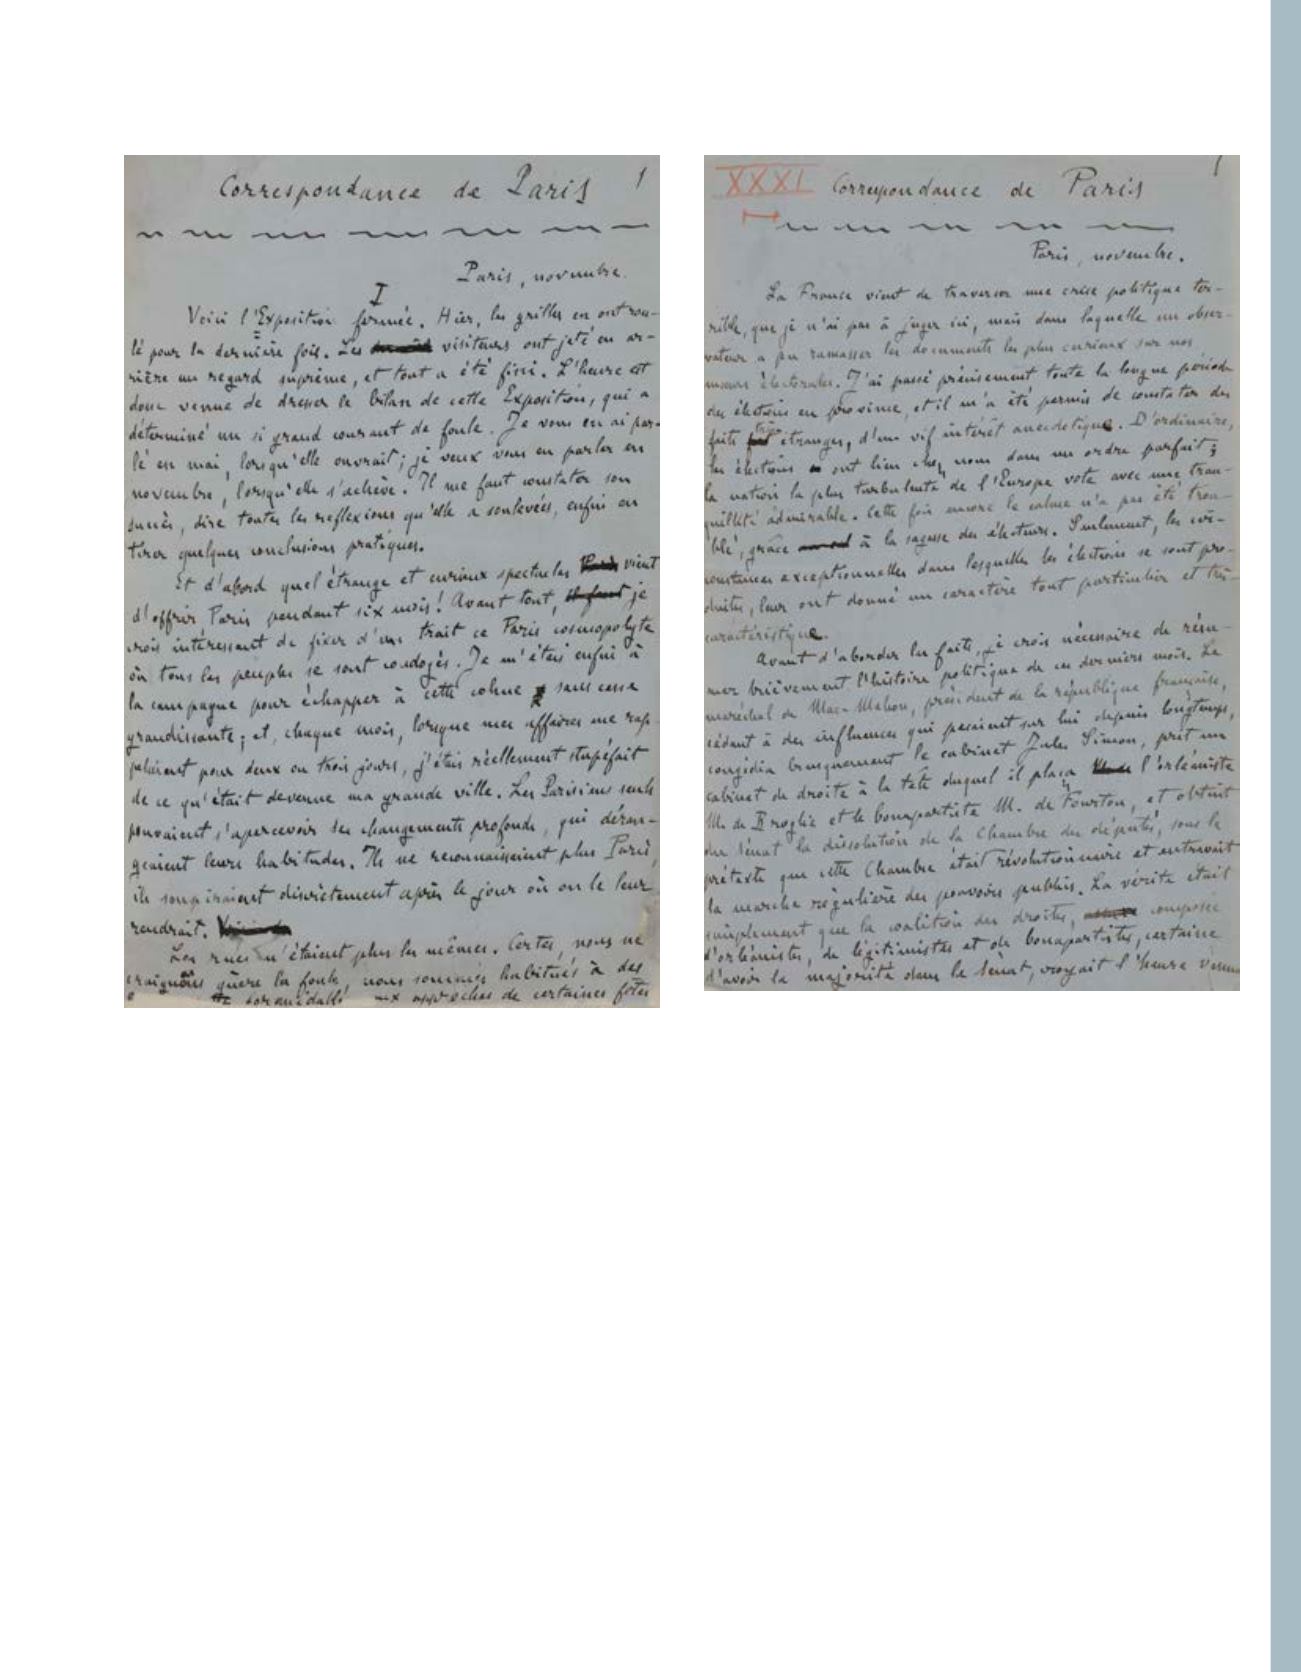 Correspondance de Paris
1
Paris, novembre.
I
Voici l'Exposition fermée. Hier, les grilles en ont rou-
lé pour la dernière fois. Les visiteurs ont jeté en ar-
rière un regard suprême, et tout a été fini. L'heure est
donc venue de dresser le bilan de cette Exposition, qui a
déterminé un si grand courant de foule. Je vous en ai par-
lé en mai, lorsqu'elle ouvrait; je veux vous en parler en
novembre, lorsqu'elle s'achève. Il me faut constater son
succès, dire toutes les reflexions qu'elle a soulevées, enfin en
tirer quelques conclusions pratiques.
Et d'abord quel étrange et curieux spectacles vient
d'offrir Paris pendant six mois! Avant tout, je
crois intéressant de fixer d'un trait ce Paris cosmopolyte
où tous les peuples se sont coudoyés. Je m'étais enfui à
la campagne pour échapper à cette cohue sans cesse
grandissante; et, chaque mois, lorsque mes affaires me rap-
pelaient pour deux ou trois jours, j'étais réellement stupéfait
de ce qu'était devenue ma grande ville. Les Parisiens seuls
pouvaient s'apercevoir des changements profonds, qui déran-
geaient leurs habitudes. Ils ne reconnaissaient plus Paris,
ils soupiraient discrètement après le jour où on le leur
rendrait.
Les rues n'étaient plus les mêmes. Certes, nous ne
craignons guère la foule, nous sommes habitués à des
formidables aux approches de certaines fêtes
XXXI Correspondance de Paris
1
Paris, novembre.
La France vient de traverser une crise politique ter-
rible, que je n'ai pas à juger ici, mais dans laquelle un obser-
vateur a pu ramasser les documents les plus curieux sur nos
mœurs électorales. J'ai passé précisement toute la longue période
des élections en province, et il m'a été permis de constater des
faits très étranges, d'un vif intérêt anecdotique. D'ordinaire,
les élections ont lieu chez nous dans un ordre parfait;
la nation la plus turbulente de l'Europe vote avec une tran-
quillité admirable. Cette fois encore le calme n'a pas été trou-
blé, grâce à la sagesse des électeurs. Seulement, les cir-
constances exceptionnelles dans lesquelles les élections se sont pro-
duites, leur ont donné un caractère tout particulier et très
caractéristique.
Avant d'aborder les faits, je crois nécessaire de résu-
mer brièvement l'histoire politique de ces derniers mois. Le
maréchal de Mac-Mahon, président de la république française,
cédant à des influences qui pesaient sur lui depuis longtemps,
congédia brusquement le cabinet Jules Simon, prit un
cabinet de droite à la tête duquel il plaça l'orléaniste
M. de Broglie et le bonapartiste M. de Fourtou, et obtint
du Sénat la dissolution de la Chambre des députés, sous le
prétexte que cette Chambre était révolutionnaire et entravait
la marche régulière des pouvoirs publics. La vérité était
simplement que la coalition des droites, composée
d'orléanistes, de légitimistes et de bonapartistes, certaine
d'avoir la majorité dans le Sénat, croyait l'heure venue